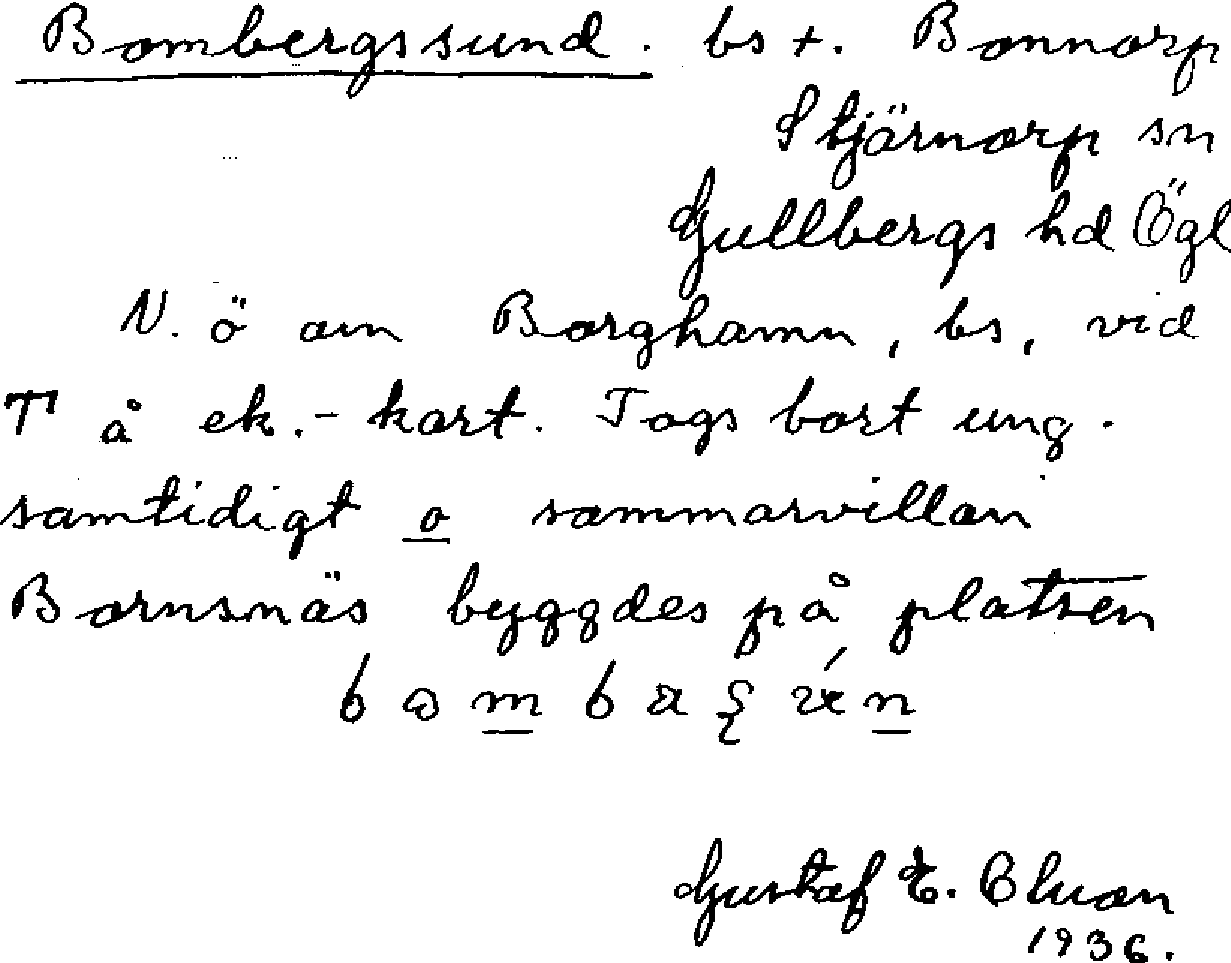 Bombergssund. bs +. Bonnorp
Stjärnorp sn
Gullbergs hd Ögl
N. ö om Borghamn, bs, vid
T å ek.-kart. Togs bort ung.
samtidigt o sommarvillan
Bornsnäs byggdes på platsen
Gustaf E.
1936.